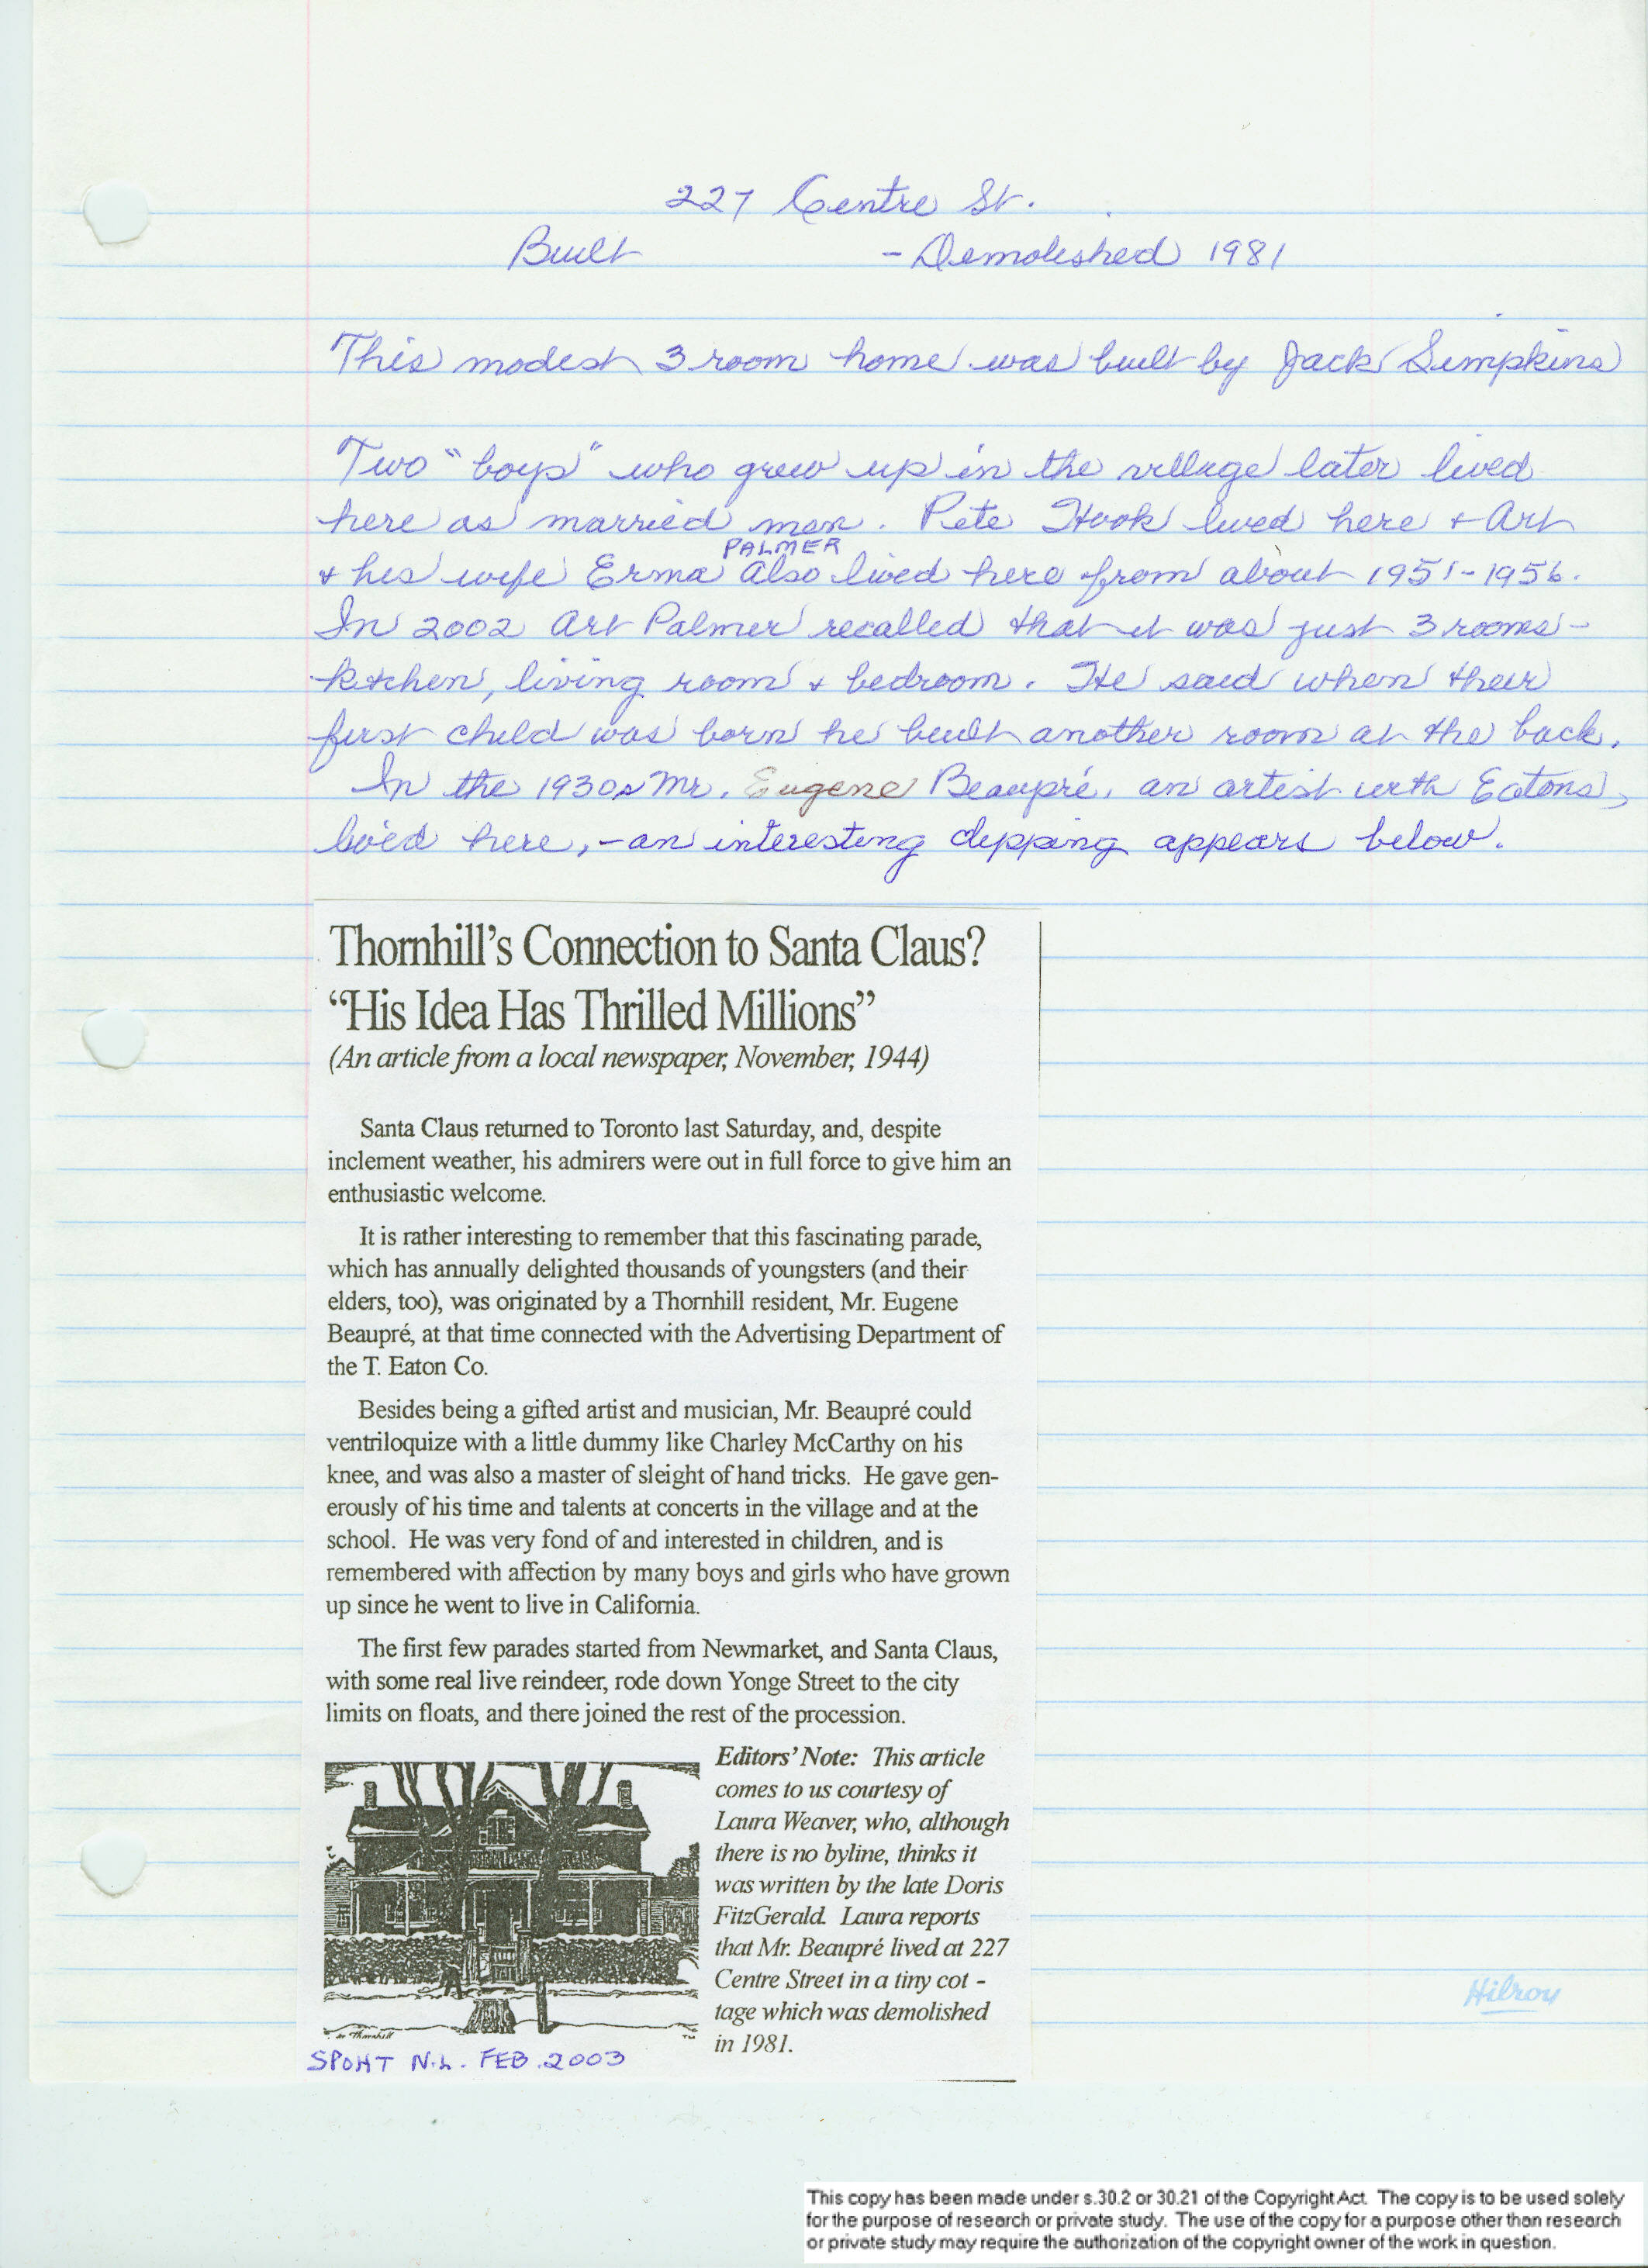 227 Centre St.
Built - Demolished 1981
This modest 3 room home was built by Jack Simpkins
Two "boys" who grew up in the village later lived
here as married men. Pete Hook lived here + Art
PALMER
+ his wife Erma also lived here from about 1951-1956.
In 2002 Art Palmer recalled that it was just 3 rooms -
kitchen, living room + bedroom. He said when their
first child was born he built another room at the back.
In the 1930s Mr. Eugene Beaupré, an artist with Eatons,
lived here, - an interesting clipping appears below.
Thornhill's Connection to Santa Claus?
“His Idea Has Thrilled Millions”
(An article from a local newspaper, November, 1944)
Santa Claus returned to Toronto last Saturday, and, despite
inclement weather, his admirers were out in full force to give him an
enthusiastic welcome.
It is rather interesting to remember that this fascinating parade,
which has annually delighted thousands of youngsters (and their
elders, too), was originated by a Thornhill resident, Mr. Eugene
Beaupré, at that time connected with the Advertising Department of
the T. Eaton Co.
Besides being a gifted artist and musician, Mr. Beaupré could
ventriloquize with a little dummy like Charley McCarthy on his
knee, and was also a master of sleight of hand tricks. He gave gen-
erously of his time and talents at concerts in the village and at the
school. He was very fond of and interested in children, and is
remembered with affection by many boys and girls who have grown
up since he went to live in California.
The first few parades started from Newmarket, and Santa Claus,
with some real live reindeer, rode down Yonge Street to the city
limits on floats, and there joined the rest of the procession.
Editors' Note: This article
comes to us courtesy of
Laura Weaver, who, although
there is no byline, thinks it
was written by the late Doris
FitzGerald. Laura reports
that Mr. Beaupré lived at 227
Centre Street in a tiny cot -
tage which was demolished
in 1981.
Thornhill
SPOHT N.L. FEB. 2003
Hilroy
This copy has been made under s.30.2 or 30.21 of the Copyright Act. The copy is to be used solely
for the purpose of research or private study. The use of the copy for a purpose other than research
or private study may require the authorization of the copyright owner of the work in question.